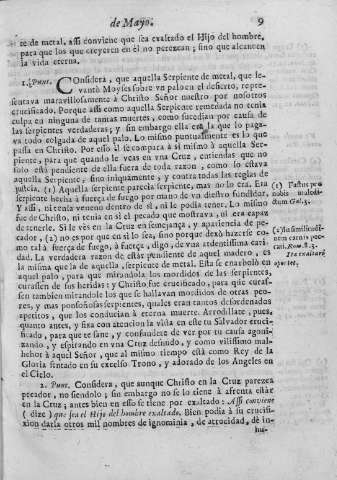 de Mayo. 9
te de metal, assi conviene que sea exaltado el Hijo del hombre,
para que los que creyeren en él no perezcan; sino que alcancen
la vida eterna.
1. Punt. Considera, que aquella Serpiente de metal, que le-
vantò Moyses sobre vn palo en el desierto, repre-
sentava maravillosamente à Christo Señor nuestro por nosotros
crucificado. Porque assi como aquella Serpiente remedada no tenia
culpa en ninguna de tantas muertes, como sucedian por causa de
las serpientes verdaderas; y sin embargo ella era la que lo paga-
va todo colgada de aquel palo. Lo mismo puntualissimo es lo que
passa en Christo. Por esto él se compara à si mismo à aquella Ser-
piente, para que quando le veas en vna Cruz, entiendas que no
solo está pendiente de ella fuera de toda razon, como lo estava
aquella Serpiente, sino iniquamente, y contra todas las reglas de
justicia. (1) Aquella serpiente parecia serpiente, mas no lo era. Era
serpiente hecha à fuerça de fuego por mano de vn diestro fundidor.
Y assi, ni tenia veneno dentro de si, ni le podia tener. Lo mismo
fue de Christo, ni tenia en si el pecado que mostrava, ni era capaz
de tenerle. Si le vès en la Cruz en semejança, y apariencia de pe-
cador, (2) no es por que en si lo sea, sino porque dexò hazerle co-
mo tal à fuerça de fuego, à fuerça, digo, de vna ardentissima cari-
dad. La verdadera razon de estàr pendiente de aquel madero, es
la misma que la de aquella serpiente de metal. Esta se enarbolò en
aquel palo, para que mirandola los mordidos de las serpientes,
curassen de sus heridas: y Christo fue crucificado, para que curas-
sen tambien mirandole los que se hallavan mordidos de otras peo-
res, y mas ponsoñosas serpientes, quales eran tantos desordenados
apetitos, que los conducian à eterna muerte. Arrodillate, pues,
quanto antes, y fixa con atencion la vida en este tu Salvador cruci-
ficado, para que te sane, y confundete de ver por tu causa agoni-
zando, y espirando en vna Cruz desnudo, y como vilissimo mal-
hechor à aquel Señor, que al mismo tiempo está como Rey de la
Gloria sentado en su excelso Trono, y adorado de los Angeles en
el Cielo.
2. Punt. Considera, que aunque Christo en la Cruz parezca
pecador, no siendolo; sin embargo no se lo tiene à afrenta estàr
en la Cruz; antes bien en esso se tiene por exaltado: Assi conviene
(dize) que sea el Hijo del hombre exaltado. Bien podia à su cruci-
xion darla otros mil nombres de ignominia, de atrocidad, de in-
hu-
(1) Factus pro
nobis maledi-
ctum Gal. 3.
(2) In similitudi-
nem carnis pec-
cati. Rom. 8. 3.
Ita exaltari
oportet.